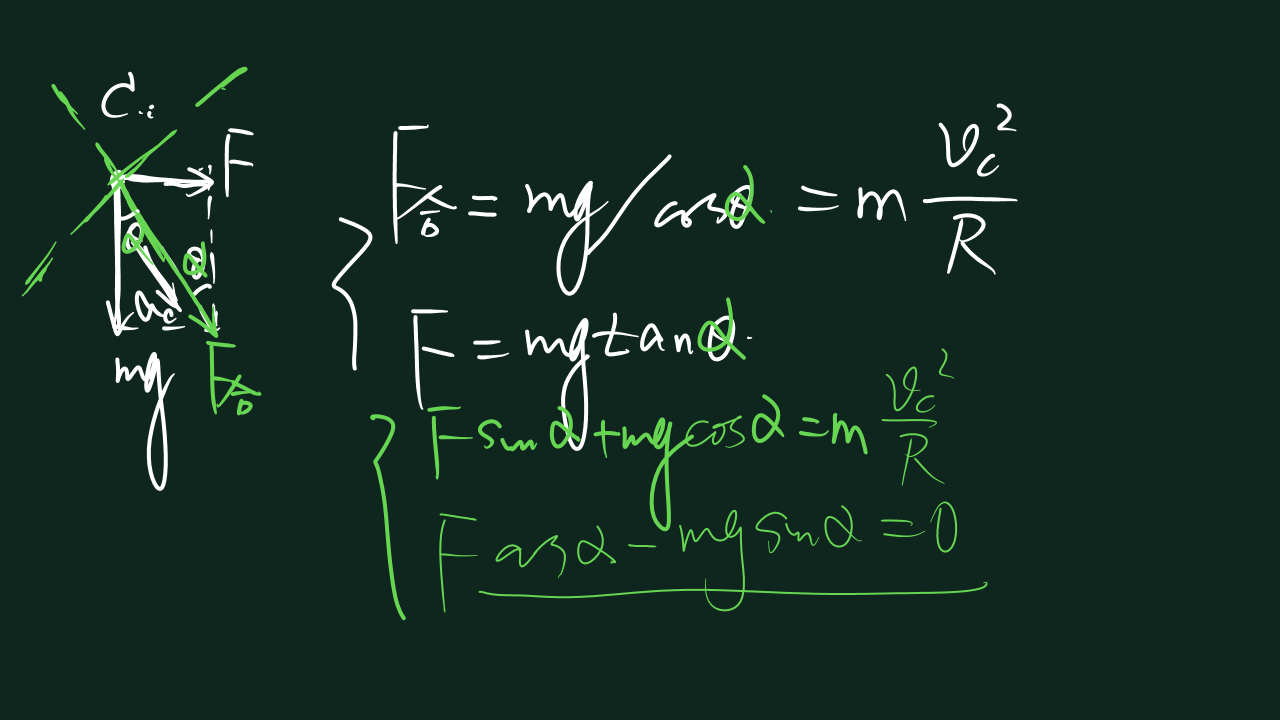 C.i
F
α
α
a_c
mg
F合
F合 = mg/cosα = m v_c²/R
F = mg tanα.
F sinα + mg cosα = m v_c²/R
F cosα - mg sinα = 0